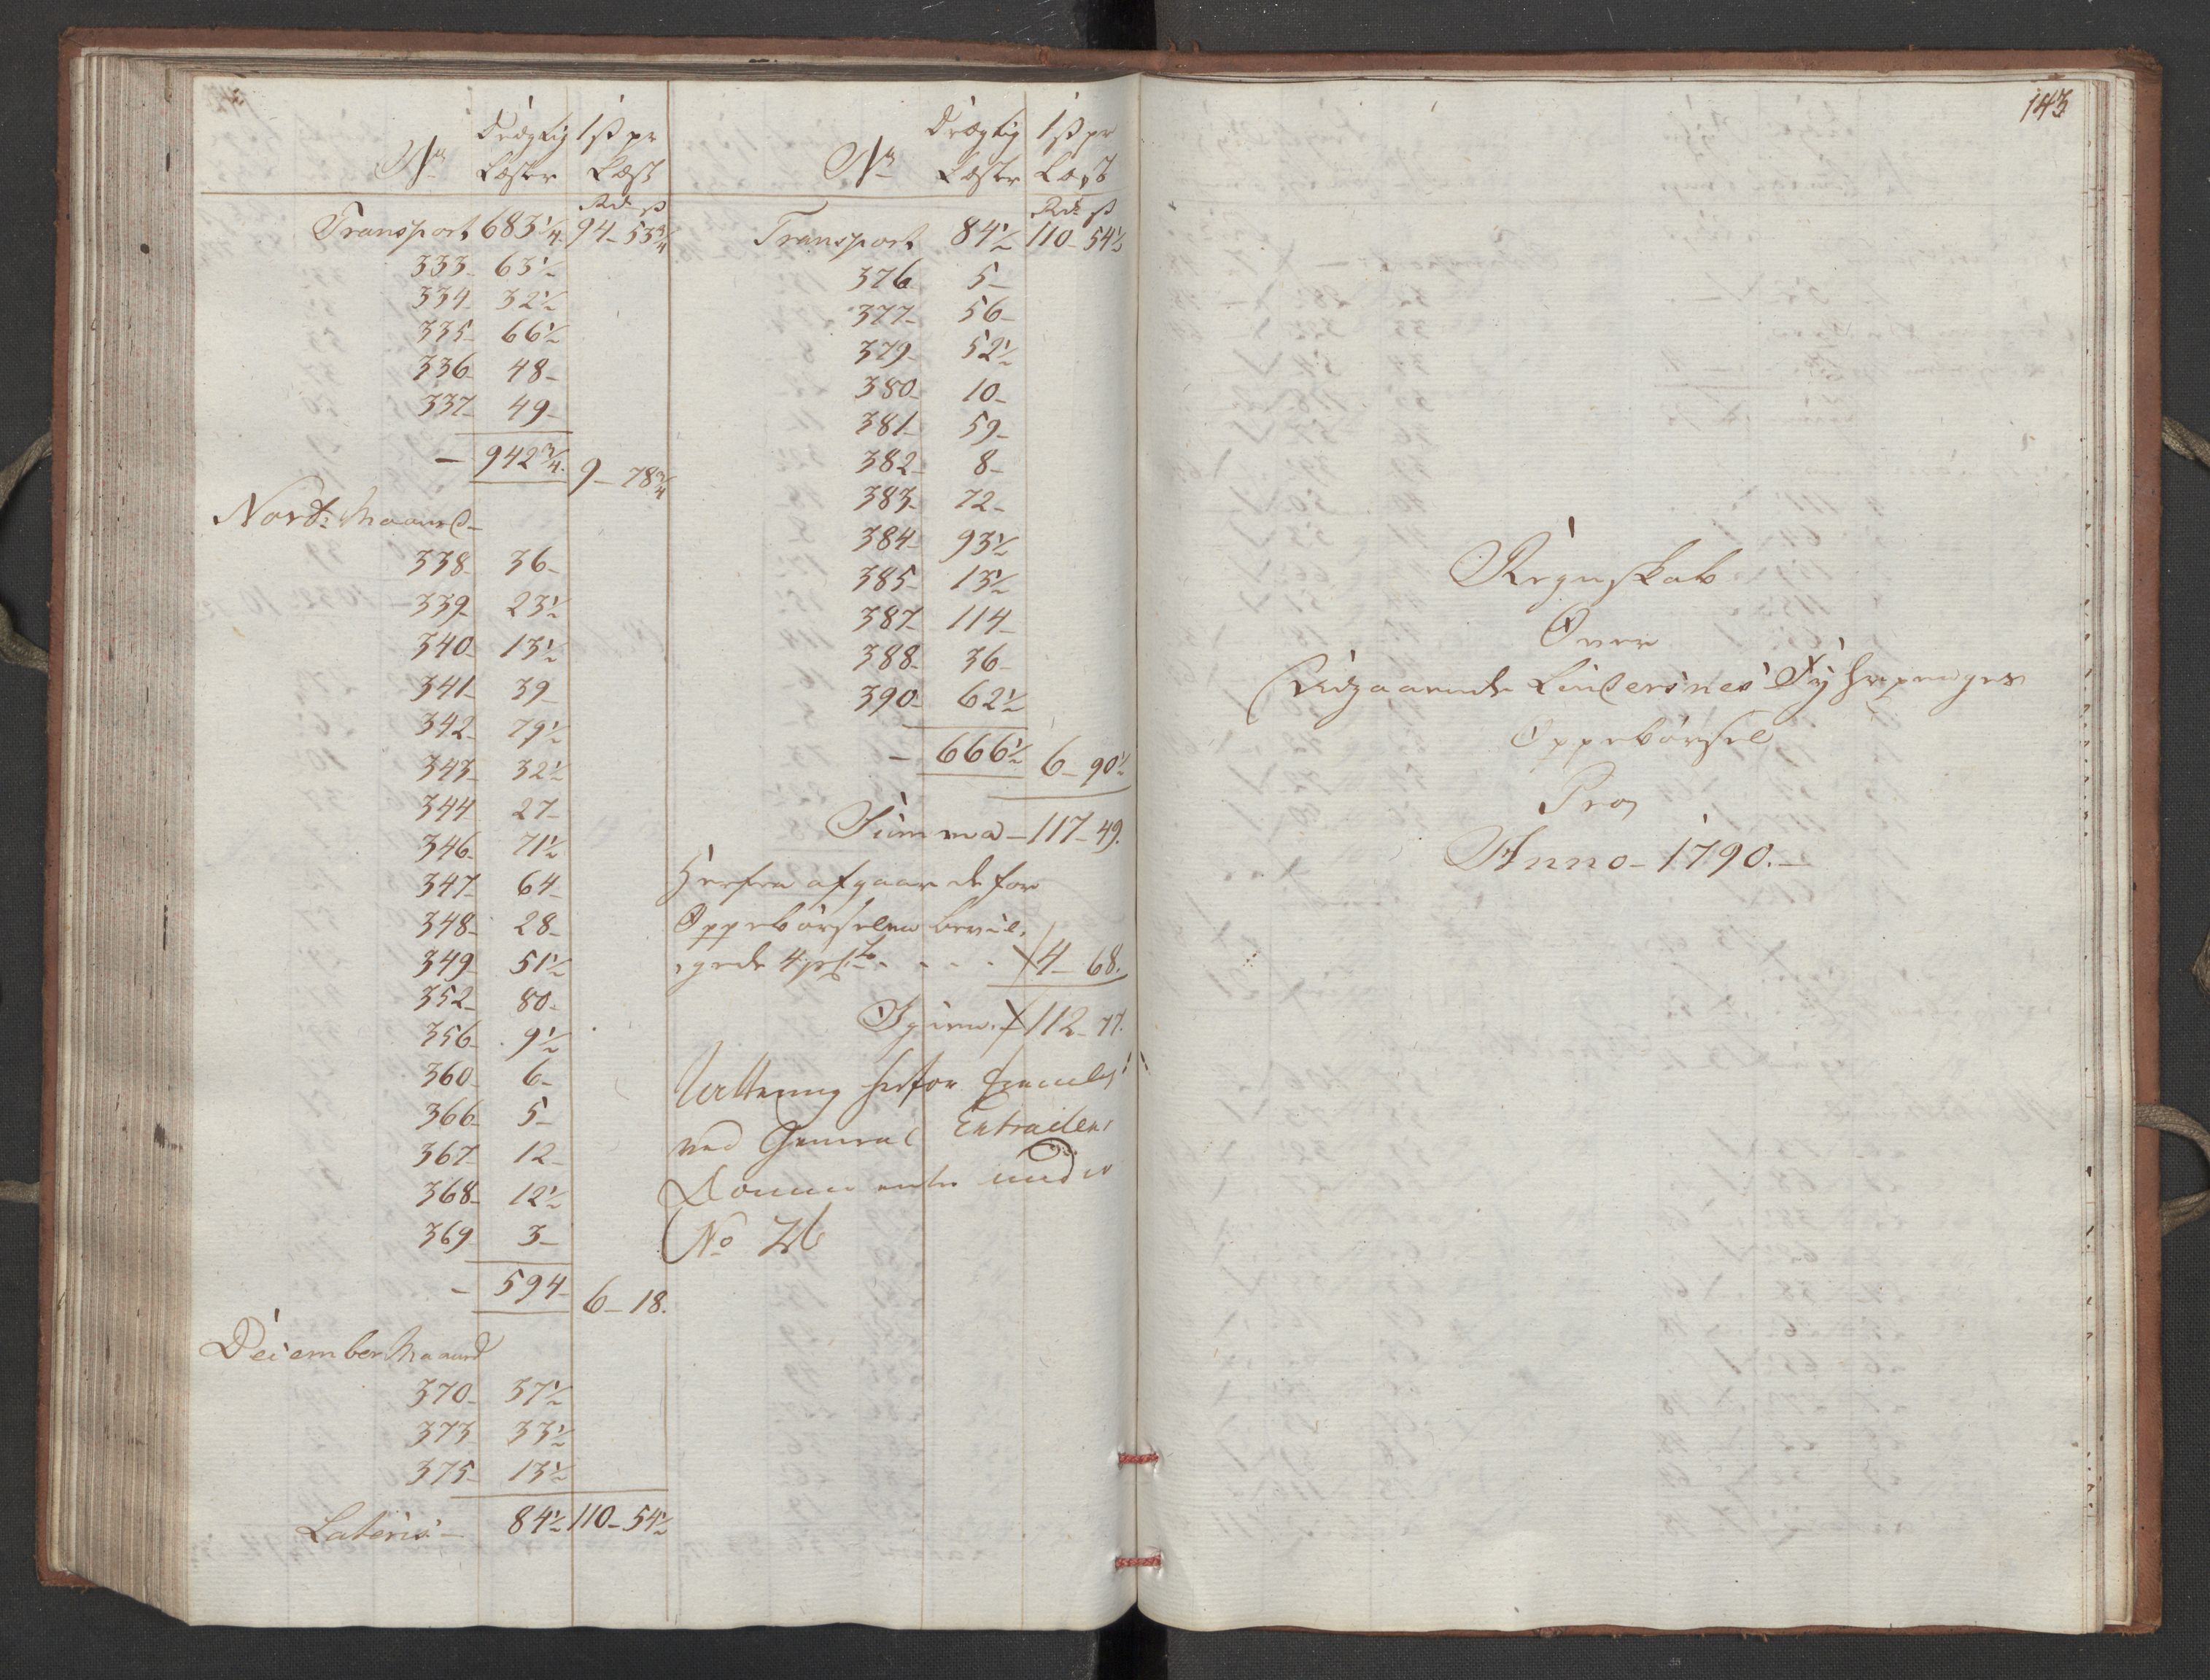 No Drægtig Læster 1 ß pr Læst
Rdr ß
Transport 683 1/4 94 - 53 3/4
333 - 63 1/2
334 - 32 1/2
335 - 66 1/2
336 - 48 -
337 - 49 -
- 942 3/4 9 - 78 3/4
Novbr: Maaned -
338 - 36 -
339 - 23 1/2
340 - 13 1/2
341 - 39 -
342 - 79 1/2
343 - 32 1/2
344 27 -
346 - 71 1/2
347 - 64 -
348 - 28 -
349 - 51 1/2
352 - 80 -
356 - 9 1/2
360 - 6 -
366 - 5 -
367 - 12 -
368 - 12 1/2
369 3 -
- 594 - 6 - 18.
December Maaned
370 - 37 1/2
373 33 1/2
375 - 13 1/2
Lateris - 84 1/2 110 - 54 1/2
No Drægtig Læster 1 ß pr Læst
Rdr ß
Transport 84 1/2 110 - 54 1/2
376 5 -
377 - 56 -
379 - 52 1/2
380 - 10 -
381 - 59 -
382 - 8 -
383 - 72 -
384 - 93 1/2
385 - 13 1/2
387 - 114 -
388 - 36 -
390 - 62 1/2
- 666 1/2 6 - 90 1/2
Summa - 117 - 49.
Herfra afgaar de for
Oppebørselen bevil,
,gede 4 prCto - - - - 4 - 68.
Igien - 112 - 77.
Qvittering herfor
ved General Extraditens
Documenter under
No 26
143
Regnskab
Over
Udgaaende Lindersnes Fyhrpenges
Oppebørsel
Pro
Anno - 1790. -